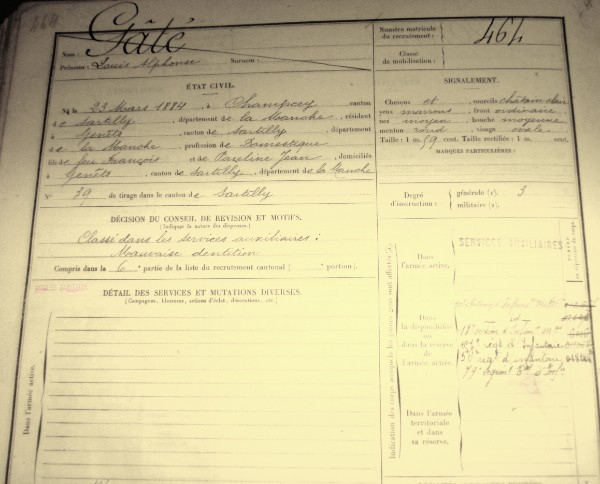 464
Gâté
Nom :
Prénoms : Louis Alphonse Surnom :
Numéro matricule du recrutement : 464
Classe de mobilisation :
ÉTAT CIVIL.
Né le 23 Mars 1884, à Champcey canton
de Sartilly, département de la Manche, résidant
à Genêts, canton de Sartilly, département
de la Manche, profession de Domestique
fils de feu François et de Jean, domiciliés
à Genêts, canton de Sartilly, département de la Manche
N° 39 de tirage dans le canton de Sartilly
SIGNALEMENT.
Cheveux et sourcils châtain
yeux marrons front ordinaire
nez moyen bouche moyenne
menton rond visage ovale
Taille : 1 m. 59 cent. Taille rectifiée : 1 m. cent.
MARQUES PARTICULIÈRES :
DÉCISION DU CONSEIL DE REVISION ET MOTIFS.
(Indiquer la nature des dispenses.)
Classé dans les services auxiliaires :
Mauvaise dentition
Compris dans la 6e partie de la liste du recrutement cantonal ( e portion).
Degré d'instruction : générale (1). 3
militaire (2).
DÉTAIL DES SERVICES ET MUTATIONS DIVERSES.
(Campagnes, blessures, actions d'éclat, décorations, etc.)
Dans l'armée active.
Indication des corps auxquels les jeunes gens sont affectés.
Dans l'armée active.
SERVICES AUXILIAIRES
Dans la disponibilité ou dans la réserve de l'armée active.
id
régt d'Infanterie
régt d'infanterie
Dans l'armée territoriale et dans sa réserve.